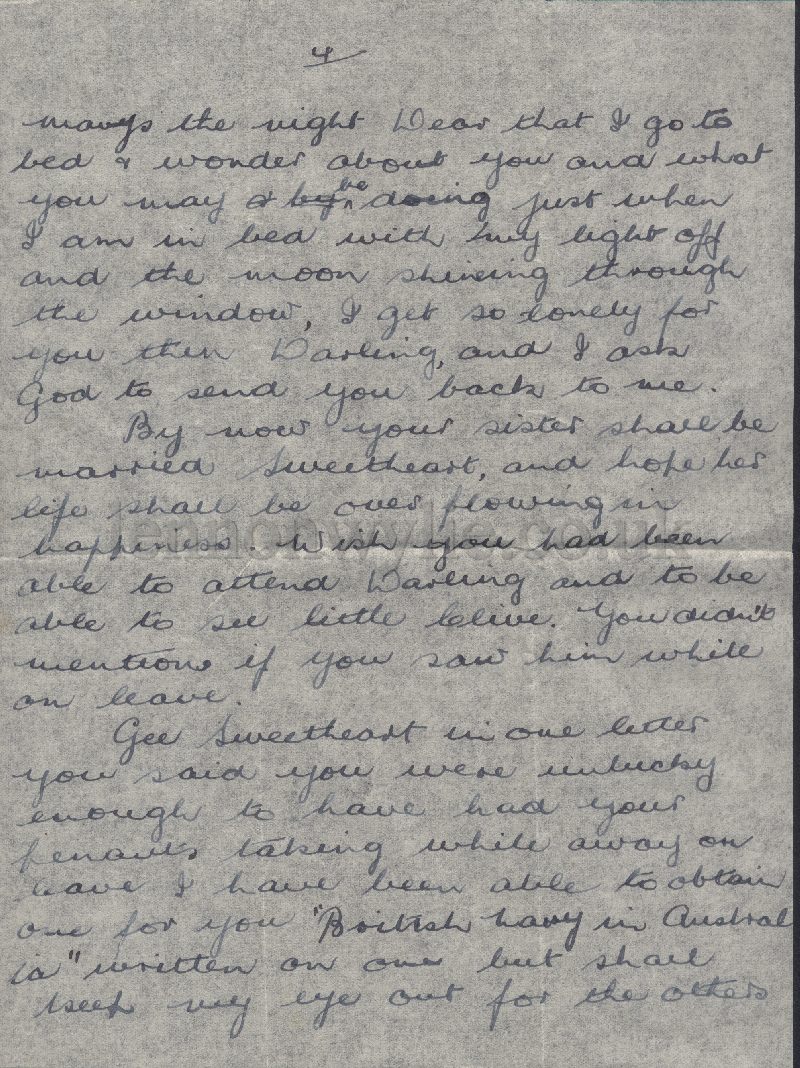 4
marys the night Dear that I go to
bed & wonder about you and what
you may be doing just when
I am in bed with my light off
and the moon shining through
the window, I get so lonely for
you then Darling, and I ask
God to send you back to me.
By now your sister shall be
married Sweetheart, and hope her
life shall be over flowing in
happiness. Wish you had been
able to attend Darling and to be
able to see little Clive. You didn't
mention if you saw him while
on leave.
Gee Sweetheart in one letter
you said you were unlucky
enough to have had your
penants taking while away on
leave I have been able to obtain
one for you "British Navy in Austral
ia" written on one but shall
keep my eye out for the others